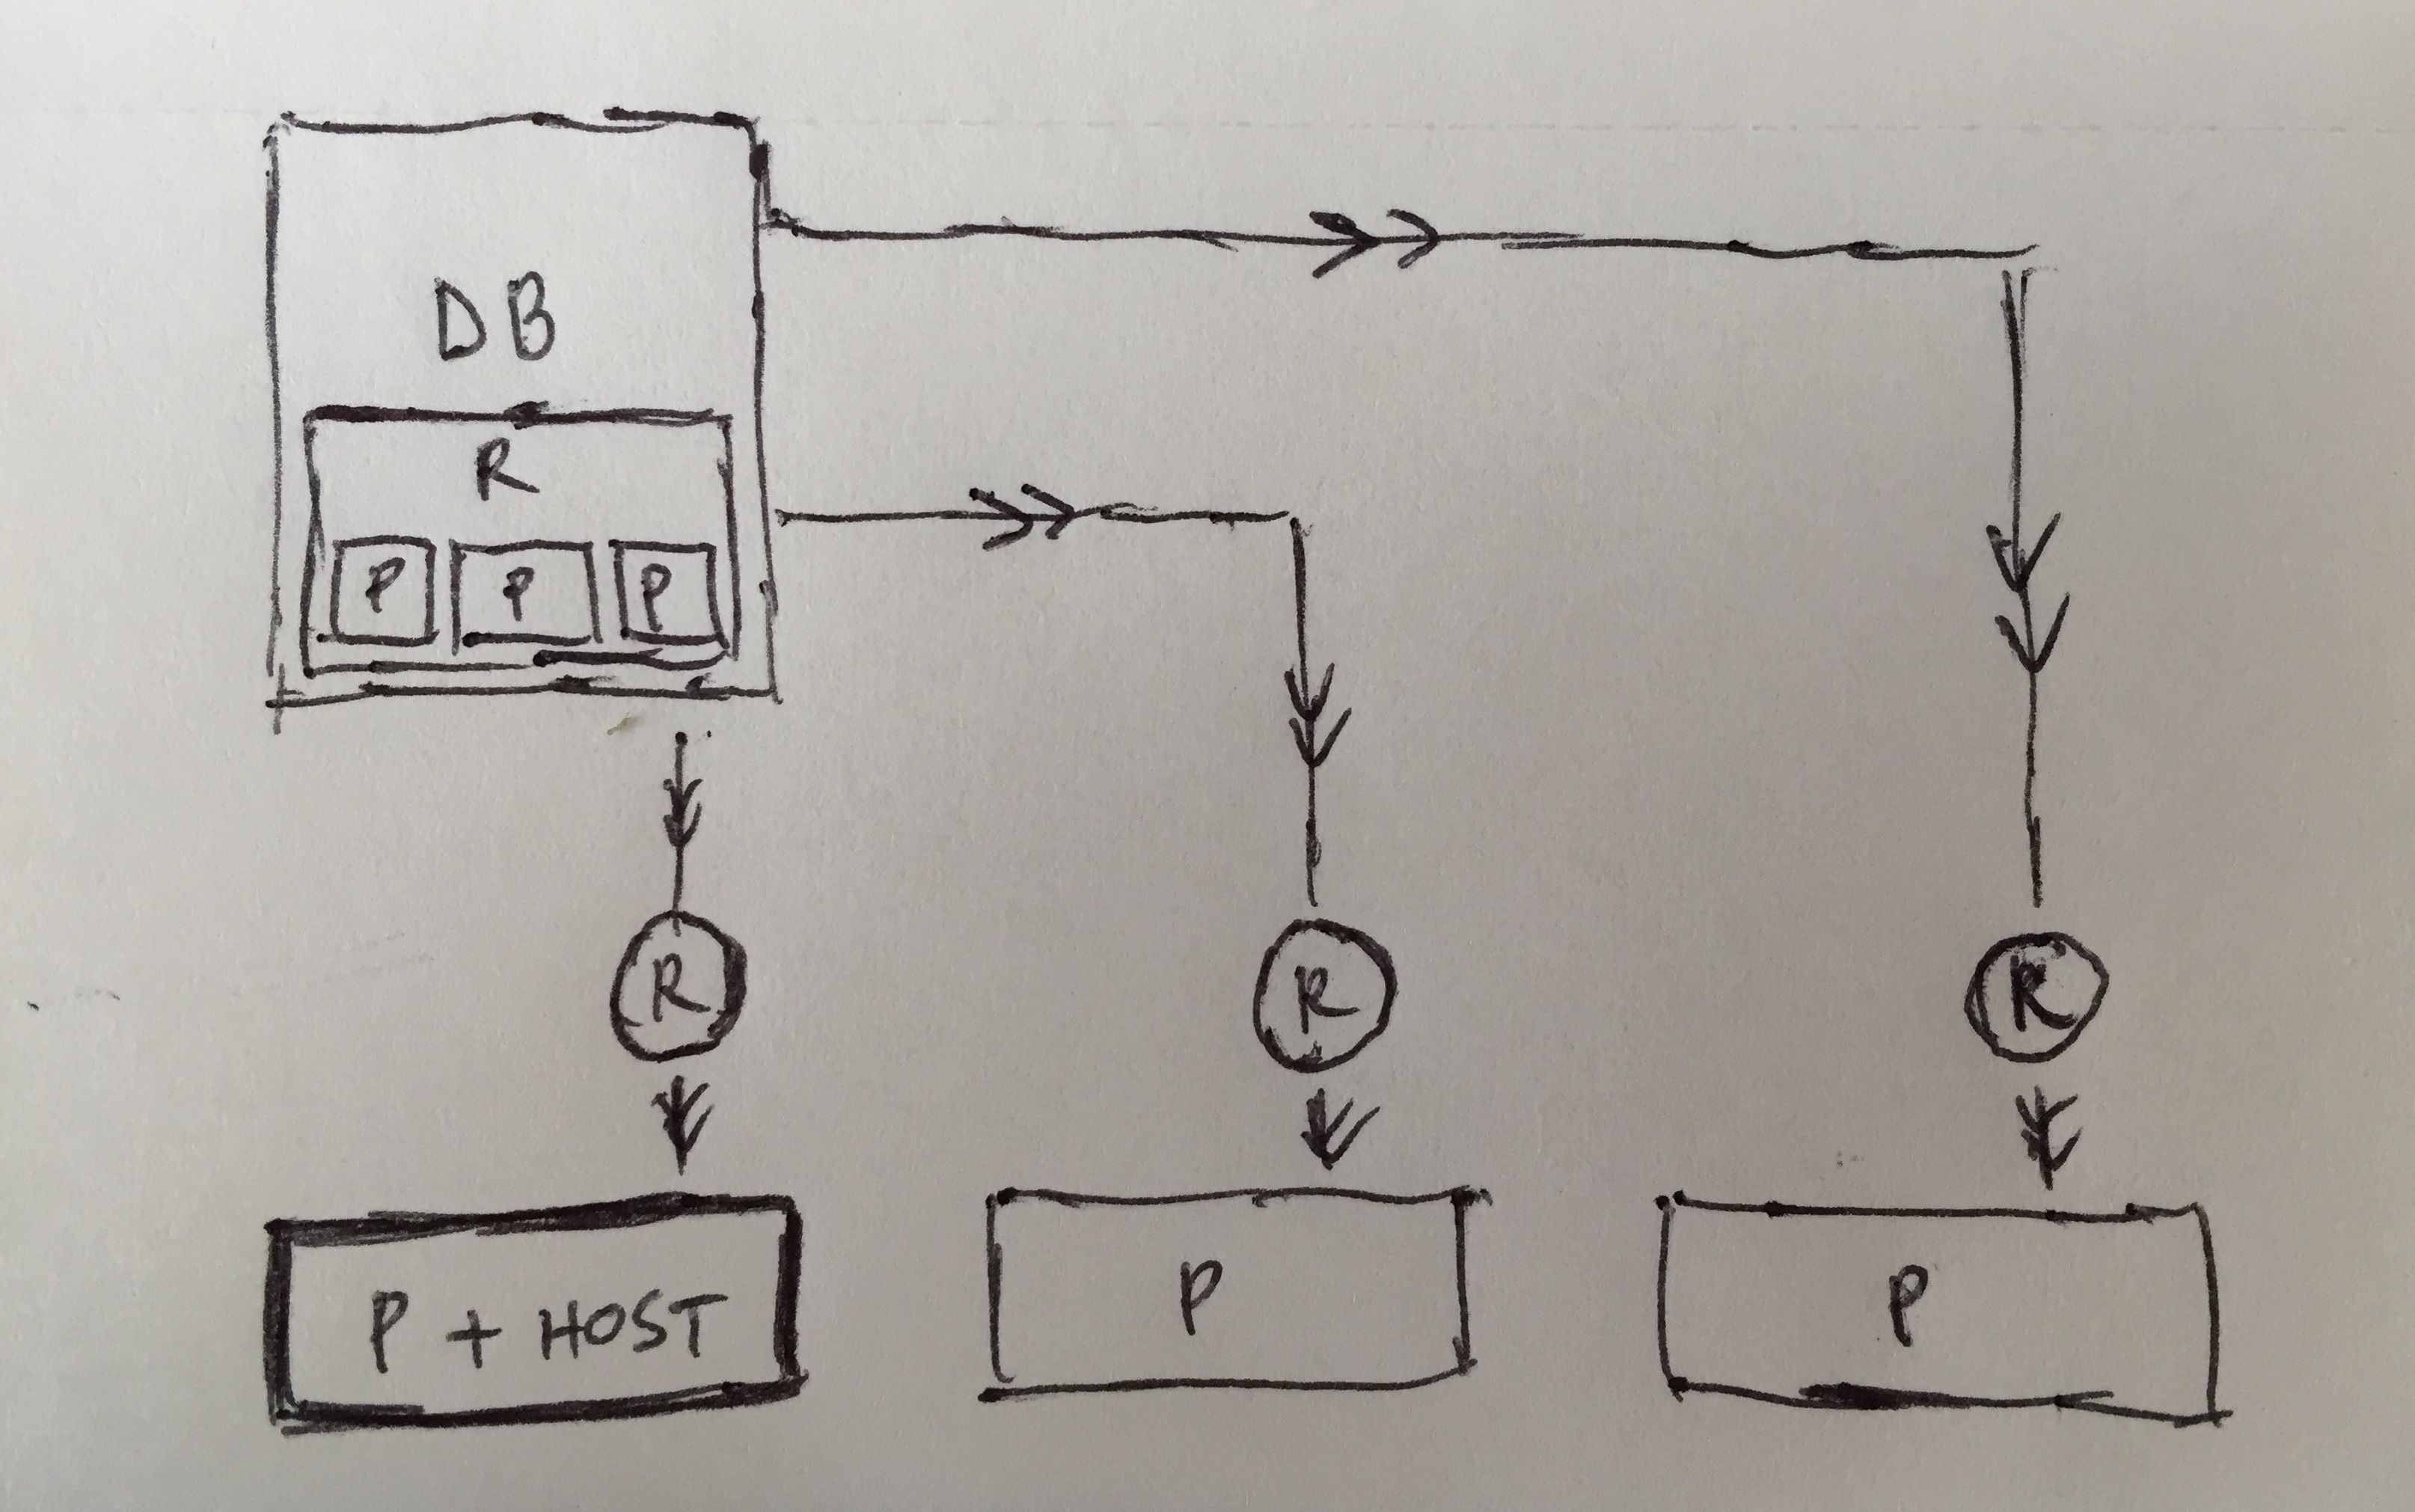 DB
R
P P P
R R R
P + HOST P P